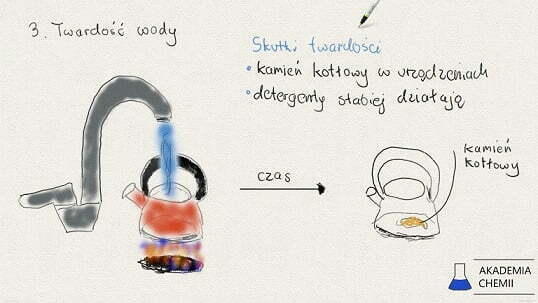 3. Twardość wody
Skutki twardości
• kamień kotłowy w urządzeniach
• detergenty słabiej działają
czas
kamień
kotłowy
AKADEMIA
CHEMII